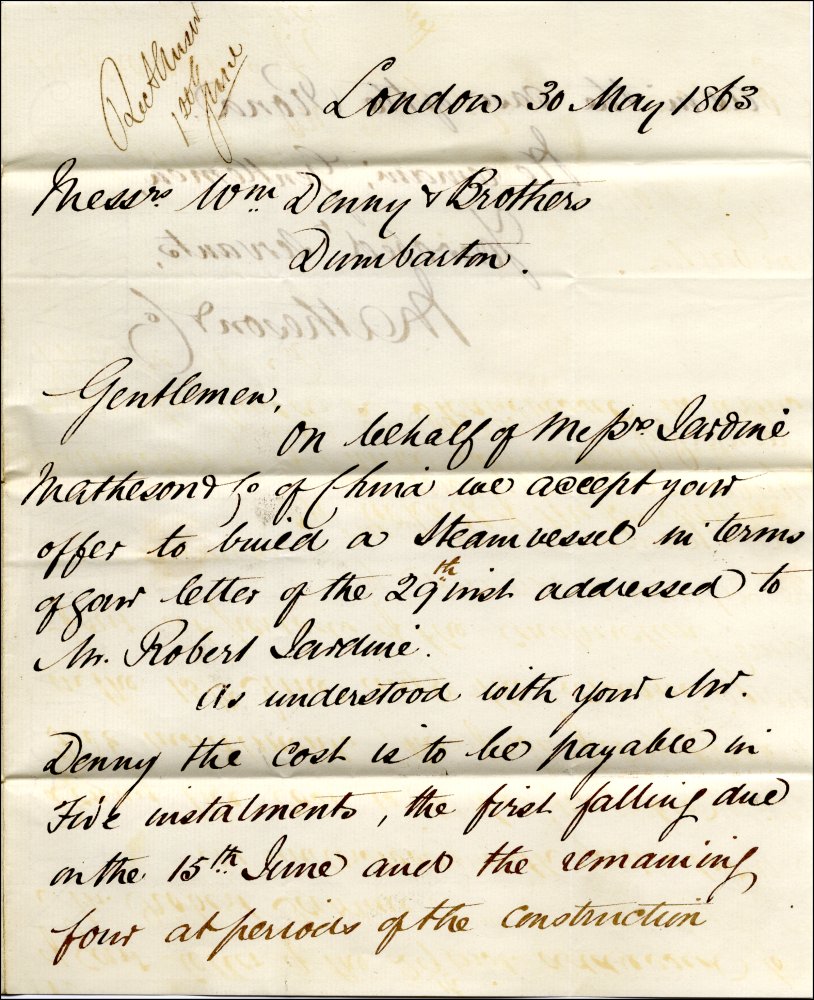 London 30 May 1863
Messrs. Wm. Denny & Brothers
Dumbarton.
Gentlemen,
On behalf of Messrs. Jardine
Matheson & Co of China we accept your
offer to build a Steam vessel in terms
of your letter of the 29th inst addressed to
Mr. Robert Jardine.
As understood with your Mr.
Denny the cost is to be payable in
Five instalments, the first falling due
on the 15th June and the remaining
four at periods of the construction
June
Matheson & Co